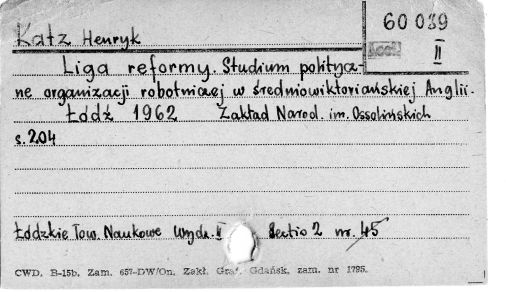 60 039
Katz Henryk
II
Liga reformy. Studium politycz-
ne organizacji robotniczej w średniowiktoriańskiej Anglii.
Łódź 1962 Zakład Narod. im. Ossolińskich
s. 204
Łódzkie Tow. Naukowe Wydz. II Sectio 2 nr. 45
CWD. B-15b. Zam. 657-DW/On. Zakł. Graf. Gdańsk, zam. nr 1795.